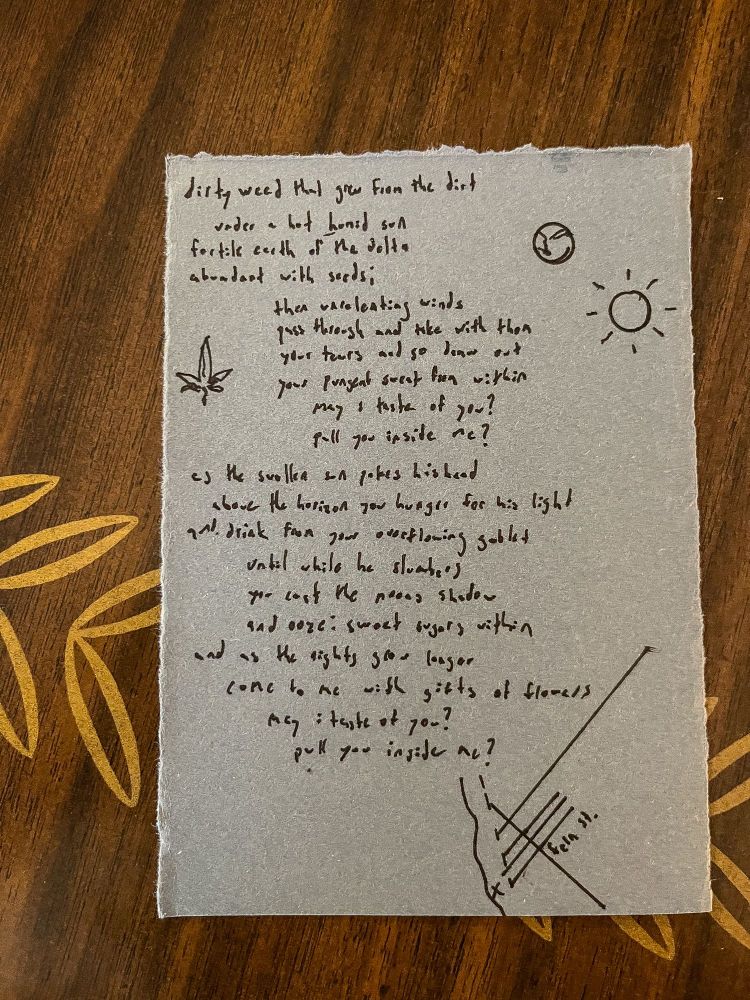 dirty weed that grew from the dirt
under a hot humid sun
fertile earth of the delta
abundant with seeds;
then unrelenting winds
pass through and take with them
your tears and so draw out
your pungent sweat from within
may i taste of you?
pull you inside me?
as the swollen sun pokes his head
above the horizon you hunger for his light
and drink from your overflowing goblet
until while he slumbers
you cast the moons shadow
and ooze: sweet sugars within
and as the nights grow longer
come to me with gifts of flowers
may i taste of you?
pull you inside me?
st.